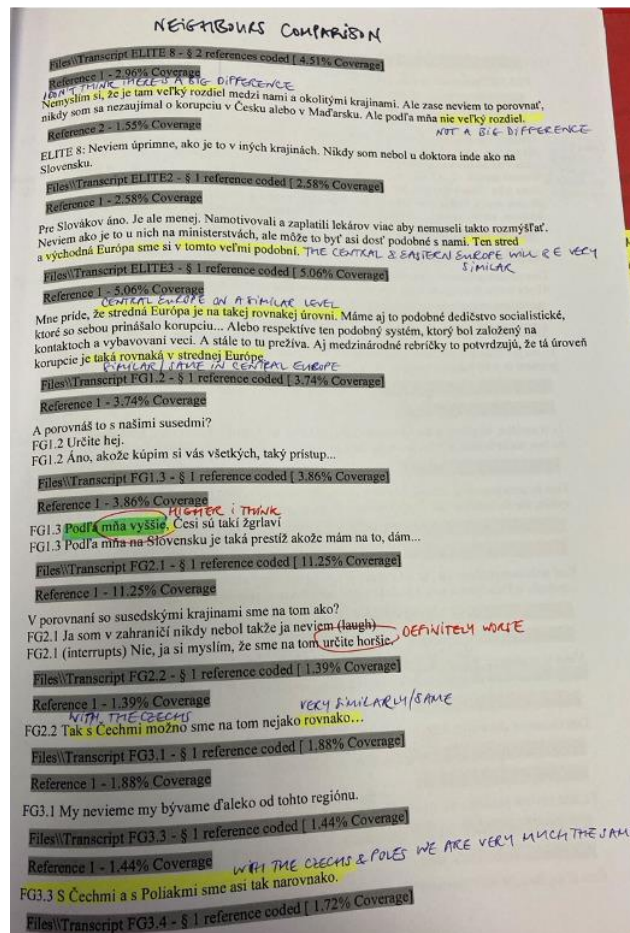 NEIGHBOURS COMPARISON
Files\\Transcript ELITE 8 - § 2 references coded [ 4.51% Coverage]
Reference 1 - 2.96% Coverage
I DON'T THINK THERE IS A BIG DIFFERENCE
Nemyslím si, že je tam veľký rozdiel medzi nami a okolitými krajinami. Ale zase neviem to porovnať,
nikdy som sa nezaujímal o korupciu v Česku alebo v Maďarsku. Ale podľa mňa nie veľký rozdiel.
Reference 2 - 1.55% Coverage
NOT A BIG DIFFERENCE
ELITE 8: Neviem úprimne, ako je to v iných krajinách. Nikdy som nebol u doktora inde ako na
Slovensku.
Files\\Transcript ELITE2 - § 1 reference coded [ 2.58% Coverage]
Reference 1 - 2.58% Coverage
Pre Slovákov áno. Je ale menej. Namotivovali a zaplatili lekárov viac aby nemuseli takto rozmýšľať.
Neviem ako je to u nich na ministerstvách, ale môže to byť asi dosť podobné s nami. Ten stred
a východná Európa sme si v tomto veľmi podobní. THE CENTRAL & EASTERN EUROPE WILL BE VERY
SIMILAR
Files\\Transcript ELITE3 - § 1 reference coded [ 5.06% Coverage]
Reference 1 - 5.06% Coverage
CENTRAL EUROPE ON A SIMILAR LEVEL
Mne príde, že stredná Európa je na takej rovnakej úrovni. Máme aj to podobné dedičstvo socialistické,
ktoré so sebou prinášalo korupciu... Alebo respektíve ten podobný systém, ktorý bol založený na
kontaktoch a vybavovaní vecí. A stále to tu prežíva. Aj medzinárodné rebríčky to potvrdzujú, že tá úroveň
korupcie je taká rovnaká v strednej Európe.
SIMILAR/SAME IN CENTRAL EUROPE
Files\\Transcript FG1.2 - § 1 reference coded [ 3.74% Coverage]
Reference 1 - 3.74% Coverage
A porovnáš to s našimi susedmi?
FG1.2 Určite hej.
FG1.2 Áno, akože kúpim si vás všetkých, taký prístup...
Files\\Transcript FG1.3 - § 1 reference coded [ 3.86% Coverage]
Reference 1 - 3.86% Coverage
HIGHER I THINK
FG1.3 Podľa mňa vyššie, Česi sú takí žgrlaví
FG1.3 Podľa mňa na Slovensku je taká prestíž akože mám na to, dám...
Files\\Transcript FG2.1 - § 1 reference coded [ 11.25% Coverage]
Reference 1 - 11.25% Coverage
V porovnaní so susedskými krajinami sme na tom ako?
FG2.1 Ja som v zahraničí nikdy nebol takže ja neviem (laugh)
FG2.1 (interrupts) Nie, ja si myslím, že sme na tom určite horšie. DEFINITELY WORSE
Files\\Transcript FG2.2 - § 1 reference coded [ 1.39% Coverage]
Reference 1 - 1.39% Coverage
WITH THE CZECHS VERY SIMILARLY/SAME
FG2.2 Tak s Čechmi možno sme na tom nejako rovnako...
Files\\Transcript FG3.1 - § 1 reference coded [ 1.88% Coverage]
Reference 1 - 1.88% Coverage
FG3.1 My nevieme my bývame ďaleko od tohto regiónu.
Files\\Transcript FG3.3 - § 1 reference coded [ 1.44% Coverage]
Reference 1 - 1.44% Coverage
WITH THE CZECHS & POLES WE ARE VERY MUCH THE SAM
FG3.3 S Čechmi a s Poliakmi sme asi tak narovnako.
Files\\Transcript FG3.4 - § 1 reference coded [ 1.72% Coverage]